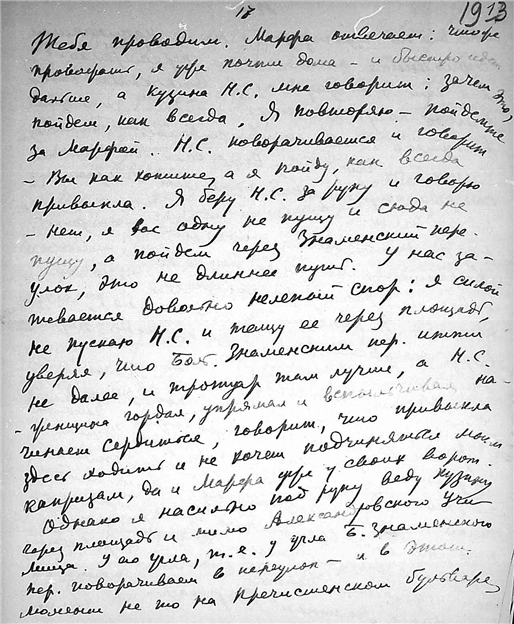 17
1913
Тебя проводим. Марфа отвечает: что же
провожать, я уже почти дома – и быстро идет
дальше, а кузина Н.С. мне говорит: зачем это,
пойдем, как всегда. Я повторяю – пойдемте
за Марфой.. Н.С. поворачивается и говорит
– Вы как хотите, а я пойду, как всегда
привыкла. Я беру Н.С. за руку и говорю
– нет, я вас одну не пущу и сюда не
пущу, а пойдем через Знаменский пере-
улок, это не длиннее путь. У нас за-
тевается довольно нелепый спор: я силой
не пускаю Н.С. и тащу ее через площадь,
уверяя, что Бол. Знаменским пер. итти
не далее, и тротуар там лучше, а Н.С.
– женщина гордая, упрямая и вспыльчивая на-
чинает сердиться, говорит, что привыкла
здесь ходить и не хочет подчиняться моим
капризам, да и Марфа уже у своих ворот.
Однако я насильно под руку веду кузину
через площадь и мимо Александровского Учи-
лища. У го угла, т.е. у угла Б. Знаменского
пер. поворачиваем в переулок – и в этот
момент не то на Пречистенском бульваре,